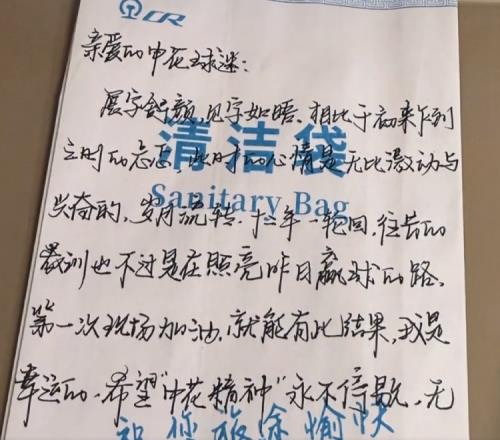 CR
亲爱的申花球迷：
展字舒颜，见字如晤，相比于初来乍到
之时的忐忑，此时的心情是无比激动与
清洁袋
兴奋的，岁月流转，十二年一轮回，往昔的
Sanitary Bag
教训也不过是在照亮昨日赢球的路。
第一次现场加油，就能有此结果，我是
幸运的。希望“申花精神”永不停歇，无
祝您旅途愉快